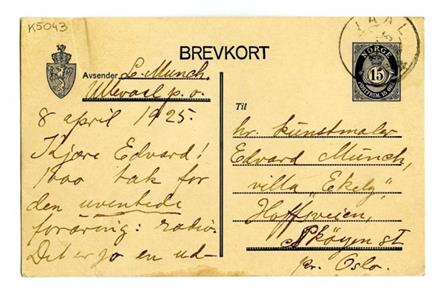 K5043
BREVKORT
Avsender L. Munch,
Ullevaal p.o.
8 april 1925.
Kjære Edvard!
tak for
den uventede
foræring: radio.
Det er jo en ud-
NORGE
15
Til
hr. kunstmaler
Edvard Munch,
villa "Ekely"
Hoffsveien,
Skøyen st
pr. Oslo.